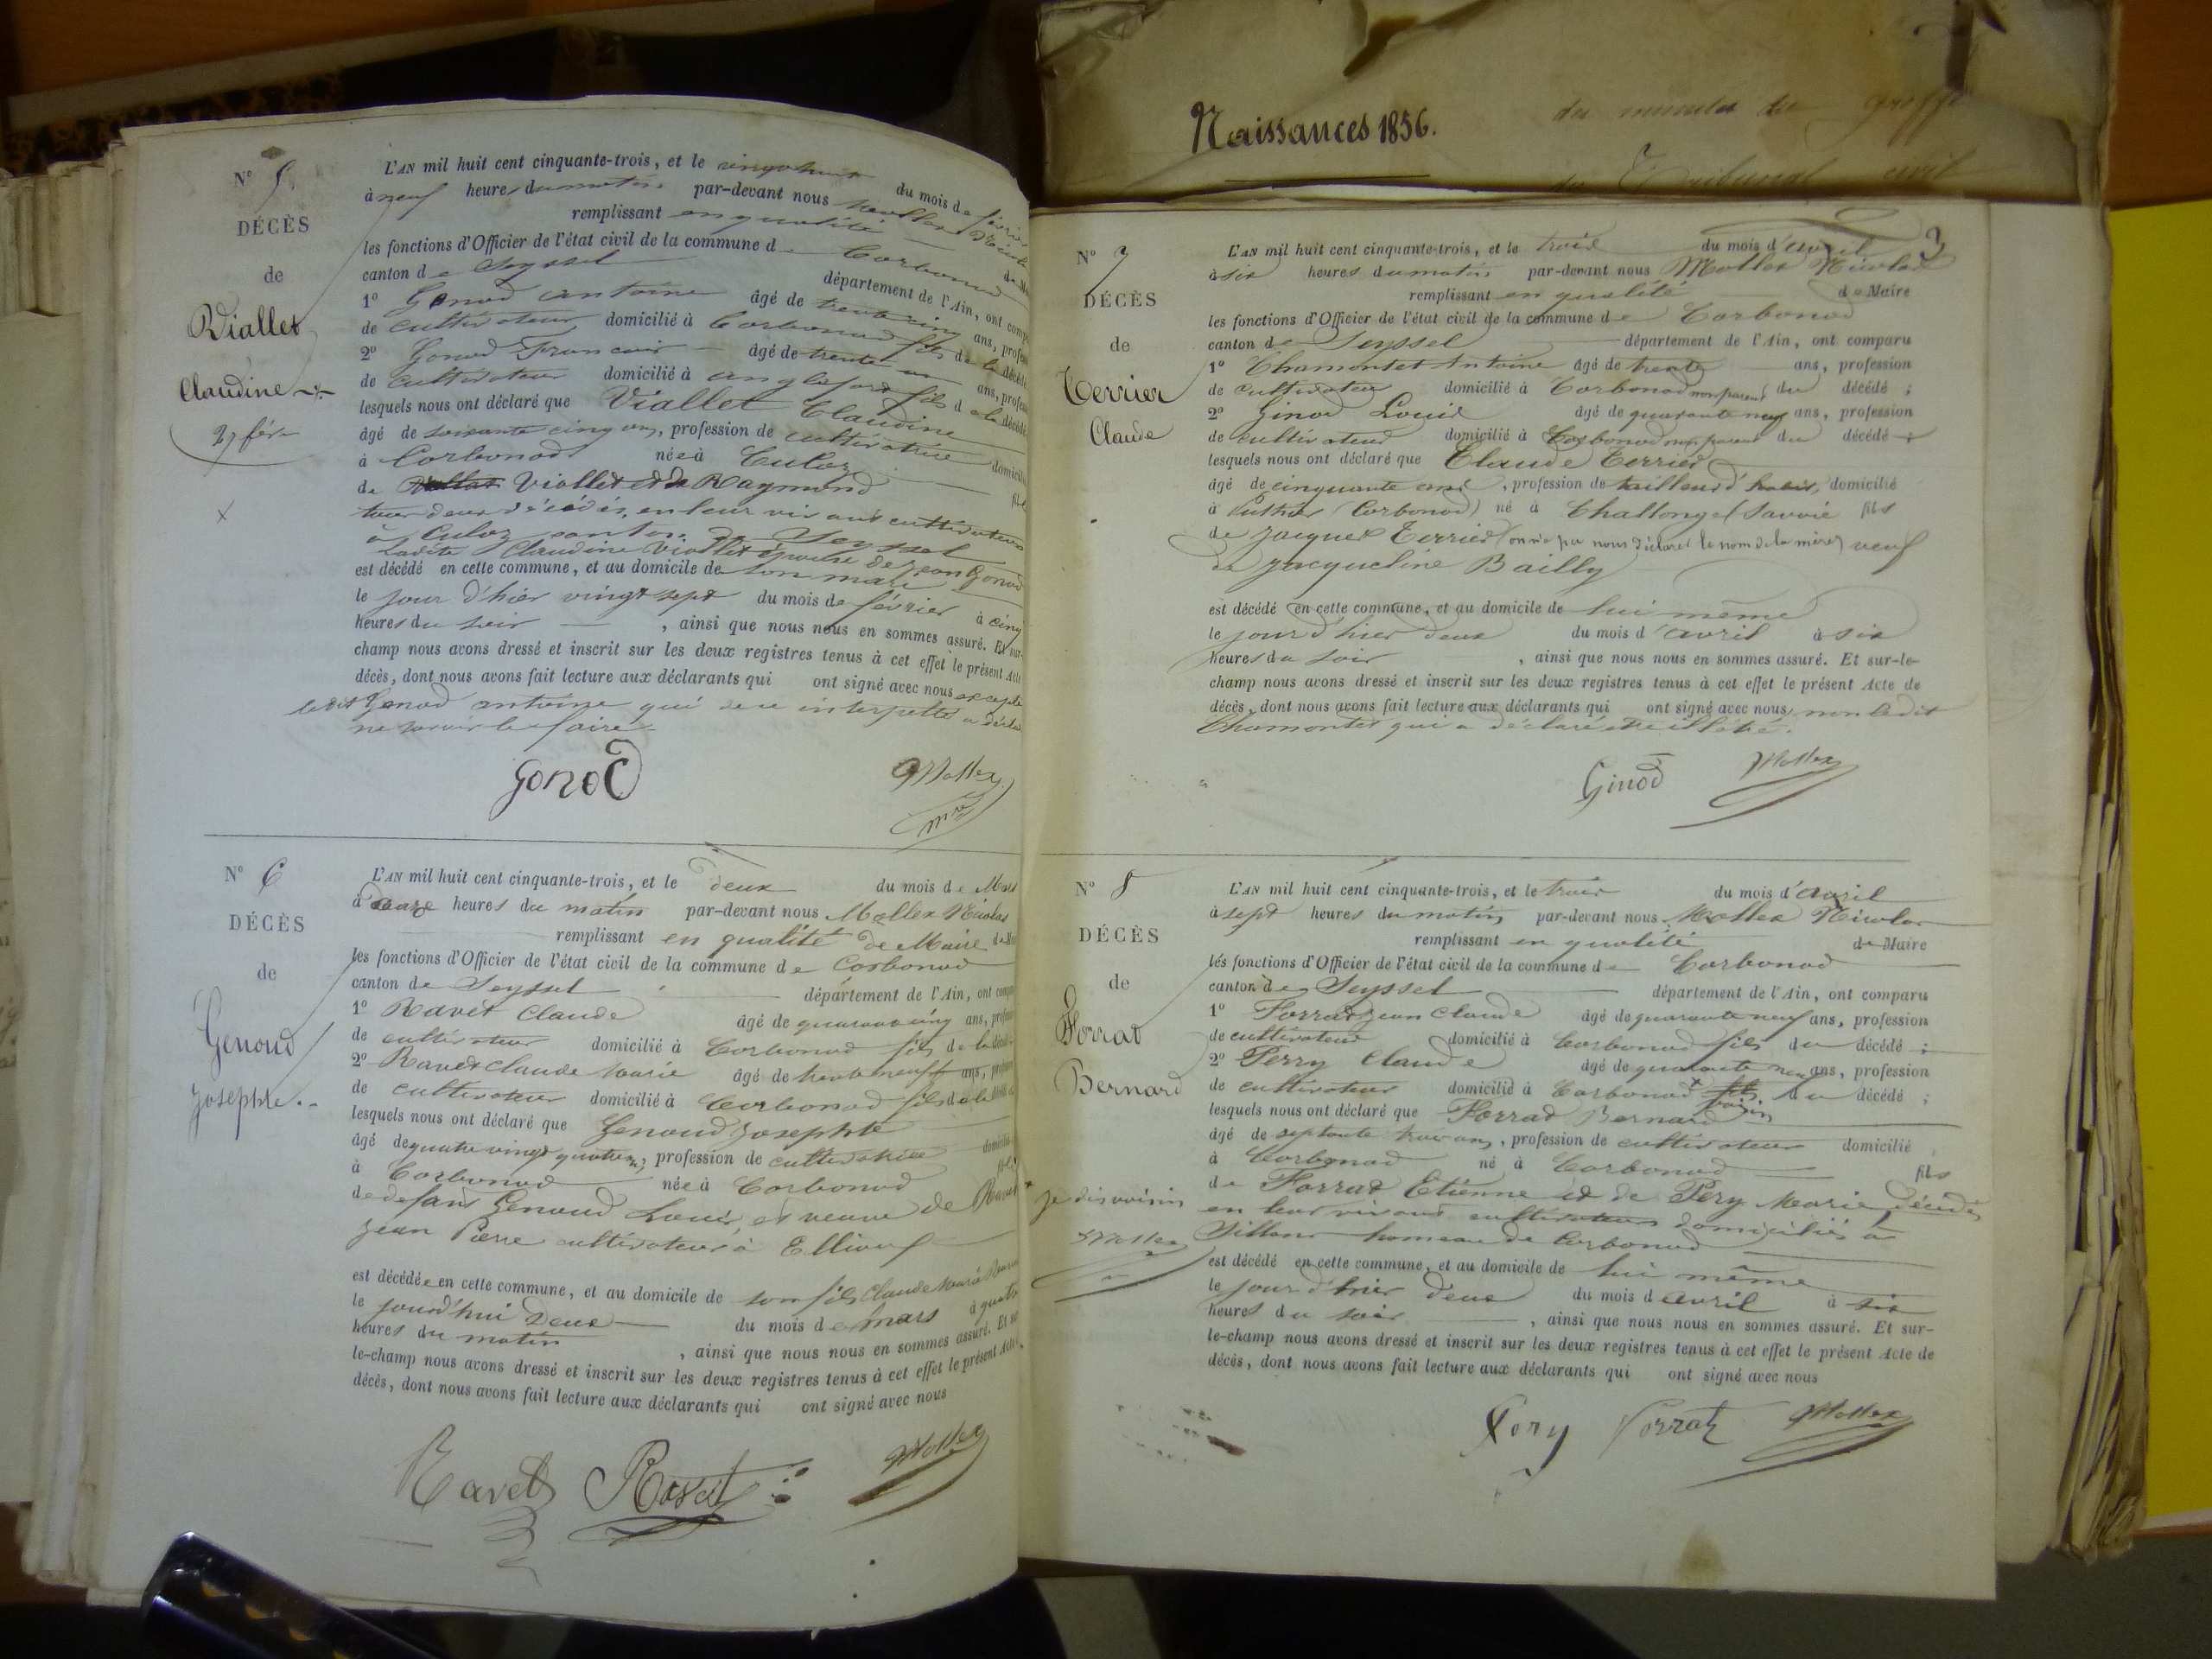 Naissances 1856.
des minutes du greffe
du Tribunal civil
N° 5
DÉCÈS
de
Viallet
Claudine
27 fév
L'AN mil huit cent cinquante-trois, et le vingt huit du mois de février
à neuf heures du matin par-devant nous Mollex Nicolas
remplissant en qualité de Maire
les fonctions d'Officier de l'état civil de la commune de Corbonod
canton de Seyssel département de l'Ain, ont comparu
1° Gonod antoine âgé de trente cinq ans, profession
de cultivateur domicilié à Corbonod fils de la décédée
2° Gonod François âgé de trente un ans, profession
de cultivateur domicilié à anglefort fils de la décédée
lesquels nous ont déclaré que Viallet Claudine
âgé de soixante cinq ans, profession de cultivatrice domiciliée
à Corbonod née à Culoz fille
de Viallet et de Raymond
tous deux décédés, en leur vivant cultivateurs
à Culoz canton de Seyssel
ladite Claudine Viallet épouse de Jean Gonod
est décédé en cette commune, et au domicile de son mari
le jour d'hier vingt sept du mois de février à cinq
heures du soir , ainsi que nous nous en sommes assuré. Et sur-
champ nous avons dressé et inscrit sur les deux registres tenus à cet effet le présent Acte
décès, dont nous avons fait lecture aux déclarants qui ont signé avec nous excepté
ledit Gonod antoine qui de ce interpellé a déclaré
ne savoir le faire
Gonod Mollex
mre
N° 6
DÉCÈS
de
Genoud
Josephte.
L'AN mil huit cent cinquante-trois, et le deux du mois de Mars
à onze heures du matin par-devant nous Mollex Nicolas
remplissant en qualité de Maire
les fonctions d'Officier de l'état civil de la commune de Corbonod
canton de Seyssel département de l'Ain, ont comparu
1° Ravet Claude âgé de quarante cinq ans, profession
de cultivateur domicilié à Corbonod fils de la décédée
2° Ravet Claude Marie âgé de trente neuf ans, profession
de cultivateur domicilié à Corbonod fils de la décédée
lesquels nous ont déclaré que Genoud Josephte
âgé de quatre vingt quatre ans, profession de cultivatrice domiciliée
à Corbonod née à Corbonod fille
de défunt Genoud Louis, et veuve de Ravet
Jean Pierre cultivateur à
est décédée en cette commune, et au domicile de son fils Claude Marie Ravet
le jourd'hui deux du mois de mars à quatre
heures du matin , ainsi que nous nous en sommes assuré. Et sur-
le-champ nous avons dressé et inscrit sur les deux registres tenus à cet effet le présent Acte
décès, dont nous avons fait lecture aux déclarants qui ont signé avec nous
Ravet Mollex
3
N° 7
DÉCÈS
de
Terrier
Claude
L'AN mil huit cent cinquante-trois, et le trois du mois d'avril
à six heures du matin par-devant nous Mollex Nicolas
remplissant en qualité de Maire
les fonctions d'Officier de l'état civil de la commune de Corbonod
canton de Seyssel département de l'Ain, ont comparu
1° Chamontet Antoine âgé de trente ans, profession
de cultivateur domicilié à Corbonod non parent du décédé ;
2° Ginod Louis âgé de quarante neuf ans, profession
de cultivateur domicilié à Corbonod non parent du décédé ;
lesquels nous ont déclaré que Claude Terrier
âgé de cinquante ans , profession de tailleur d'habits, domicilié
à (Corbonod) né à Challonges (Savoie fils
de Jacques Terrier (on n'a pu nous déclarer le nom de la mère) veuf
de Jacqueline Bailly
est décédé en cette commune, et au domicile de lui même
le jour d'hier deux du mois d'avril à six
heures du soir , ainsi que nous nous en sommes assuré. Et sur-le-
champ nous avons dressé et inscrit sur les deux registres tenus à cet effet le présent Acte de
décès, dont nous avons fait lecture aux déclarants qui ont signé avec nous non ledit
Chamontet qui a déclaré être illétré.
Ginod Mollex
N° 8
DÉCÈS
de
Forrat
Bernard
L'AN mil huit cent cinquante-trois, et le trois du mois d'avril
à sept heures du matin par-devant nous Mollex Nicolas
remplissant en qualité de Maire
les fonctions d'Officier de l'état civil de la commune de Corbonod
canton de Seyssel département de l'Ain, ont comparu
1° Forrat Jean Claude âgé de quarante neuf ans, profession
de cultivateur domicilié à Corbonod fils du décédé ;
2° Perry Claude âgé de quarante neuf ans, profession
de cultivateur domicilié à Corbonod fils voisin du décédé ;
lesquels nous ont déclaré que Forrat Bernard
âgé de septante trois ans, profession de cultivateur domicilié
à Corbonod né à Corbonod fils
de Forrat Etienne et de Pery Marie décédés
en leur vivant cultivateurs domiciliés à
Sillans hameau de Corbonod
je dis voisin
Mollex
est décédé en cette commune, et au domicile de lui même
le jour d'hier deux du mois d'avril à six
heures du soir , ainsi que nous nous en sommes assuré. Et sur-
le-champ nous avons dressé et inscrit sur les deux registres tenus à cet effet le présent Acte de
décès, dont nous avons fait lecture aux déclarants qui ont signé avec nous
Pery Forrat Mollex